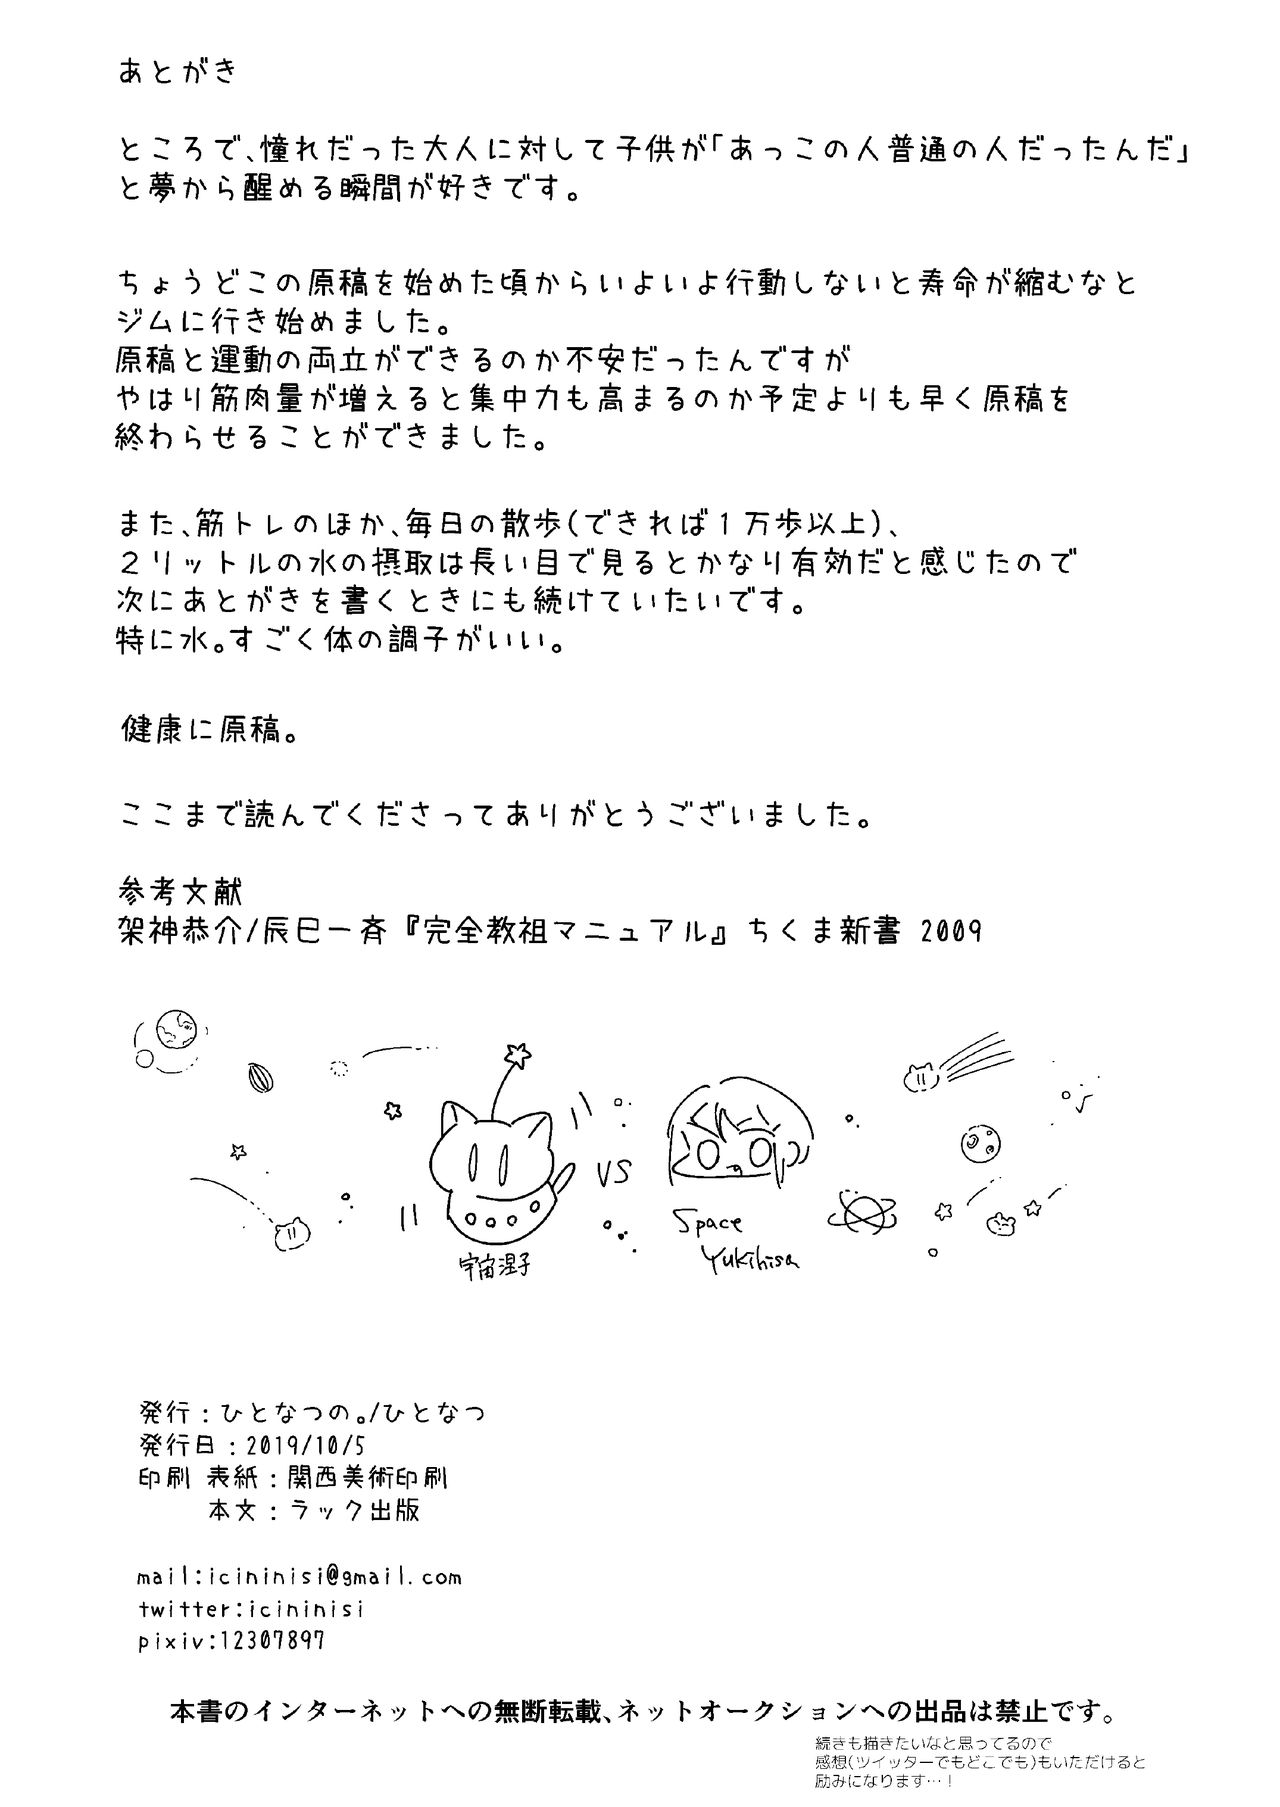 あとがき
ところで、憧れだった大人に対して子供が「あっこの人普通の人だったんだ」
と夢から醒める瞬間が好きです。
ちょうどこの原稿を始めた頃からいよいよ行動しないと寿命が縮むなと
ジムに行き始めました。
原稿と運動の両立ができるのか不安だったんですが
やはり筋肉量が増えると集中力も高まるのか予定よりも早く原稿を
終わらせることができました。
また、筋トレのほか、毎日の散歩(できれば1万歩以上)、
2リットルの水の摂取は長い目で見るとかなり有効だと感じたので
次にあとがきを書くときにも続けていたいです。
特に水。すごく体の調子がいい。
健康に原稿。
ここまで読んでくださってありがとうございました。
参考文献
架神恭介/辰巳一斉『完全教祖マニュアル』ちくま新書 2009
VS
宇宙涅子
Space
Yukihisa
発行:ひとなつの。/ひとなつ
発行日:2019/10/5
印刷 表紙:関西美術印刷
本文:ラック出版
mail:icininisi@gmail.com
twitter:icininisi
pixiv:12307897
本書のインターネットへの無断転載、ネットオークションへの出品は禁止です。
続きも描きたいなと思ってるので
感想(ツイッターでもどこでも)もいただけると
励みになります…!